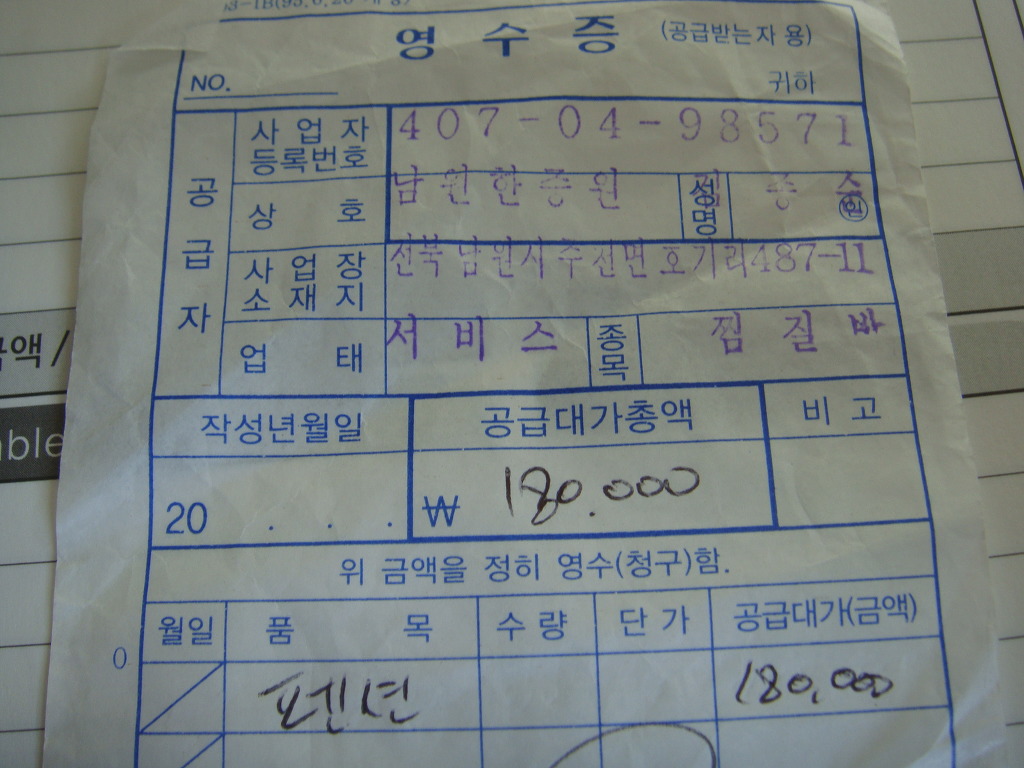 영 수 증 (공급받는자 용)
NO. 귀하
공급자
사업자등록번호 407-04-98571
상 호 남원한증원 성명 ㊞
사업장소재지 전북 남원시 주천면 호기리 487-11
업 태 서비스 종목 찜질방
작성년월일 공급대가총액 비 고
20 . . . ₩ 180.000
위 금액을 정히 영수(청구)함.
월일 품 목 수 량 단 가 공급대가(금액)
펜션 180,000
금액 /